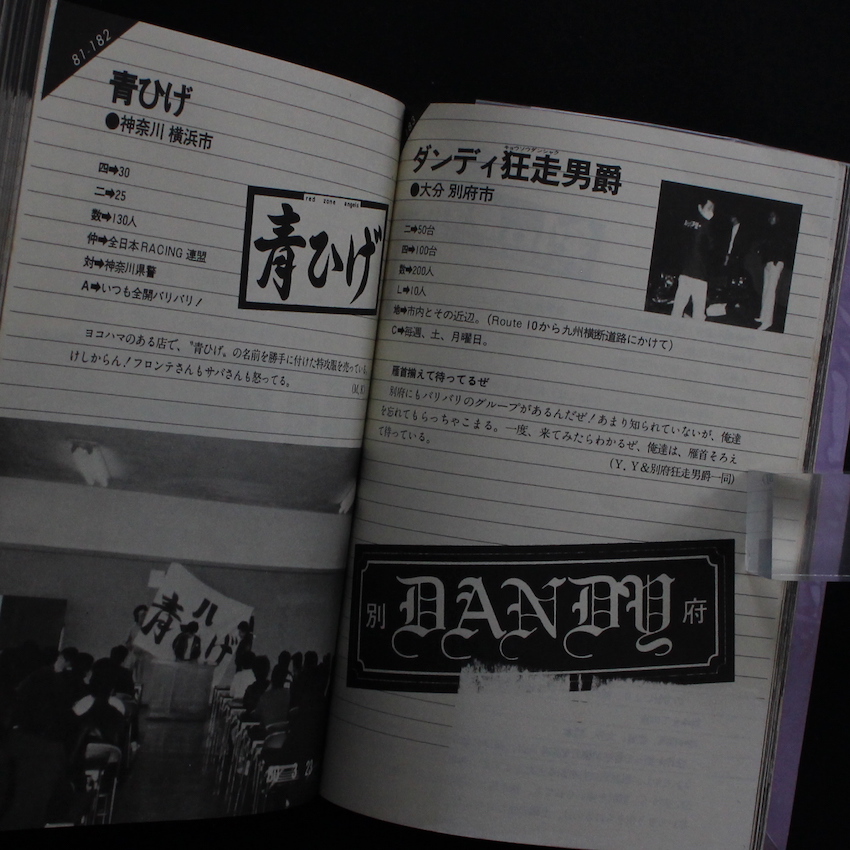 81-182
青ひげ
●神奈川 横浜市
四➡30
二➡25
数➡130人
仲➡全日本RACING連盟
対➡神奈川県警
A➡いつも全開バリバリ！
red zone angels
青ひげ
ヨコハマのある店で、〝青ひげ〟の名前を勝手に付けた特攻服を売っている。
けしからん！フロンテさんもサバさんも怒ってる。
青ひげ
23
ダンディ狂走男爵
●大分 別府市
二➡50台
四➡100台
数➡200人
L➡10人
地➡市内とその近辺。(Route 10から九州横断道路にかけて)
C➡毎週、土、月曜日。
雁首揃えて待ってるぜ
別府にもバリバリのグループがあるんだぜ！あまり知られていないが、俺達
を忘れてもらっちゃこまる。一度、来てみたらわかるぜ、俺達は、雁首そろえ
て待っている。
(Y.Y&別府狂走男爵一同)
別 DANDY 府